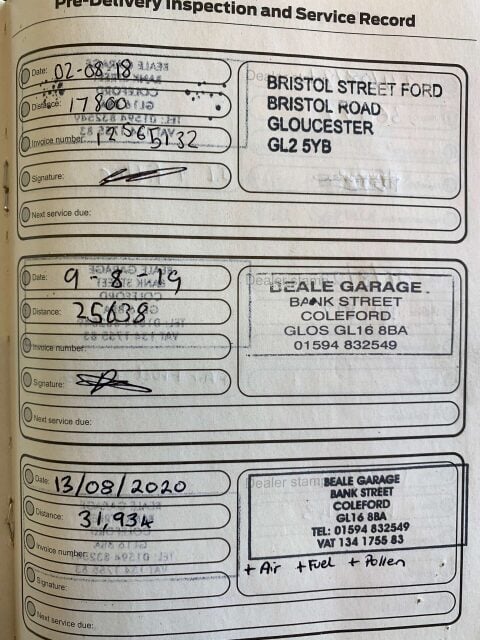 Pre-Delivery Inspection and Service Record
Date: 02-08-18
Distance: 17800
Invoice number:
Signature:
Next service due:
BRISTOL STREET FORD
BRISTOL ROAD
GLOUCESTER
GL2 5YB
Date: 9-8-19
Distance: 25638
Invoice number:
Signature:
Next service due:
Dealer stamp
BEALE GARAGE.
BANK STREET
COLEFORD
GLOS GL16 8BA
01594 832549
Date: 13/08/2020
Distance: 31,934
Invoice number:
Signature:
Next service due:
Dealer stamp
BEALE GARAGE
BANK STREET
COLEFORD
GL16 8BA
TEL: 01594 832549
VAT 134 1755 83
+ Air + Fuel + Pollen